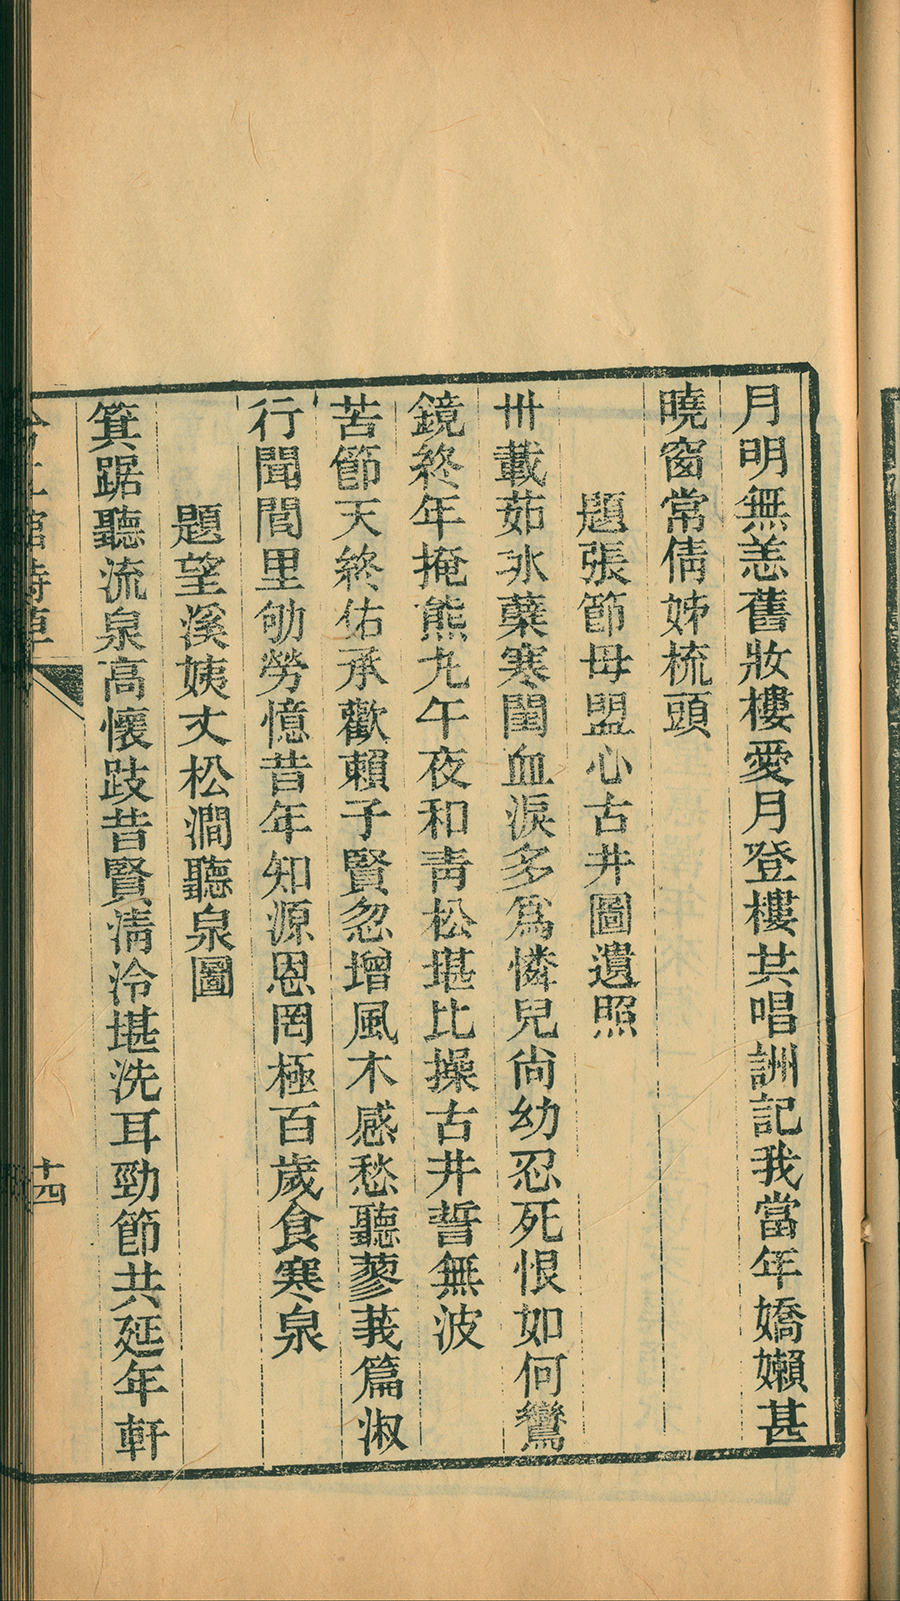 月明無恙舊妝樓愛月登樓共唱詶記我當年嬌嬾甚
曉窗常倩姊梳頭
題張節母盟心古井圖遺照
卅載茹冰蘗寒閨血淚多爲憐兒尙幼忍死恨如何鸞
鏡終年掩熊丸午夜和靑松堪比操古井誓無波
苦節天終佑承歡賴子賢忽增風木感愁聽蓼莪篇淑
行聞閭里劬勞憶昔年知源恩罔極百歲食寒泉
題望溪姨丈松澗聽泉圖
箕踞聽流泉高懷跂昔賢淸泠堪洗耳勁節共延年軒
十四